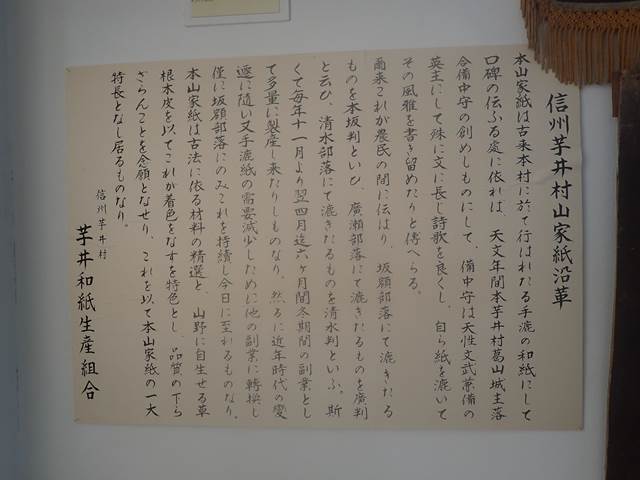 信州芋井村山家紙沿革
本山家紙は古来本村に於て行はれたる手漉の和紙にして
口碑の伝ふる処に依れば、天文年間本芋井村葛山城主落
合備中守の創めしものにして、備中守は天性文武兼備の
英主にして殊に文に長し詩歌を良くし、自ら紙を漉いて
その風雅を書き留めたりと傳へらる。
爾来これが農民の間に伝はり、坂額部落にて漉きたる
ものを本坂判といひ、廣瀬部落にて漉きたるものを廣判
と云ひ、清水部落にて漉きたるものを清水判といふ。斯
くて毎年十一月より翌四月迄六ヶ月間冬期間の副業とし
て多量に製産し来たりしものなり。然るに近年時代の変
遷に随い又手漉紙の需要減少しために他の副業に轉換し
僅に坂額部落にのみこれを持續し今日に至れるものなり。
本山家紙は古法に依る材料の精選と、山野に自生せる草
根木皮を以てこれが着色をなすを特色とし、品質の下ら
ざらんことを念願となせり、これを以て本山家紙の一大
特長となし居るものなり。
信州芋井村
芋井和紙生産組合